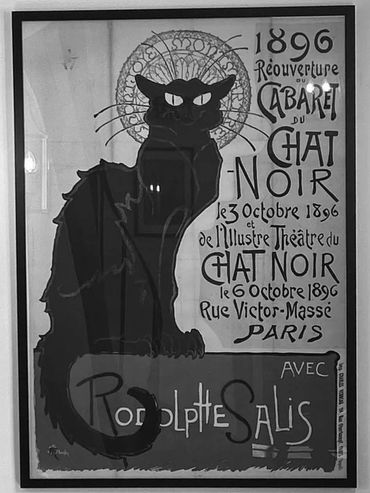 1896
Réouverture
du
CABARET
DU
CHAT
-NOIR
le 3 Octobre 1896
et
de l'Illustre Théâtre du
CHAT NOIR
le 6 Octobre 1896
Rue Victor-Massé
PARIS
AVEC
RODOLPHE SALIS